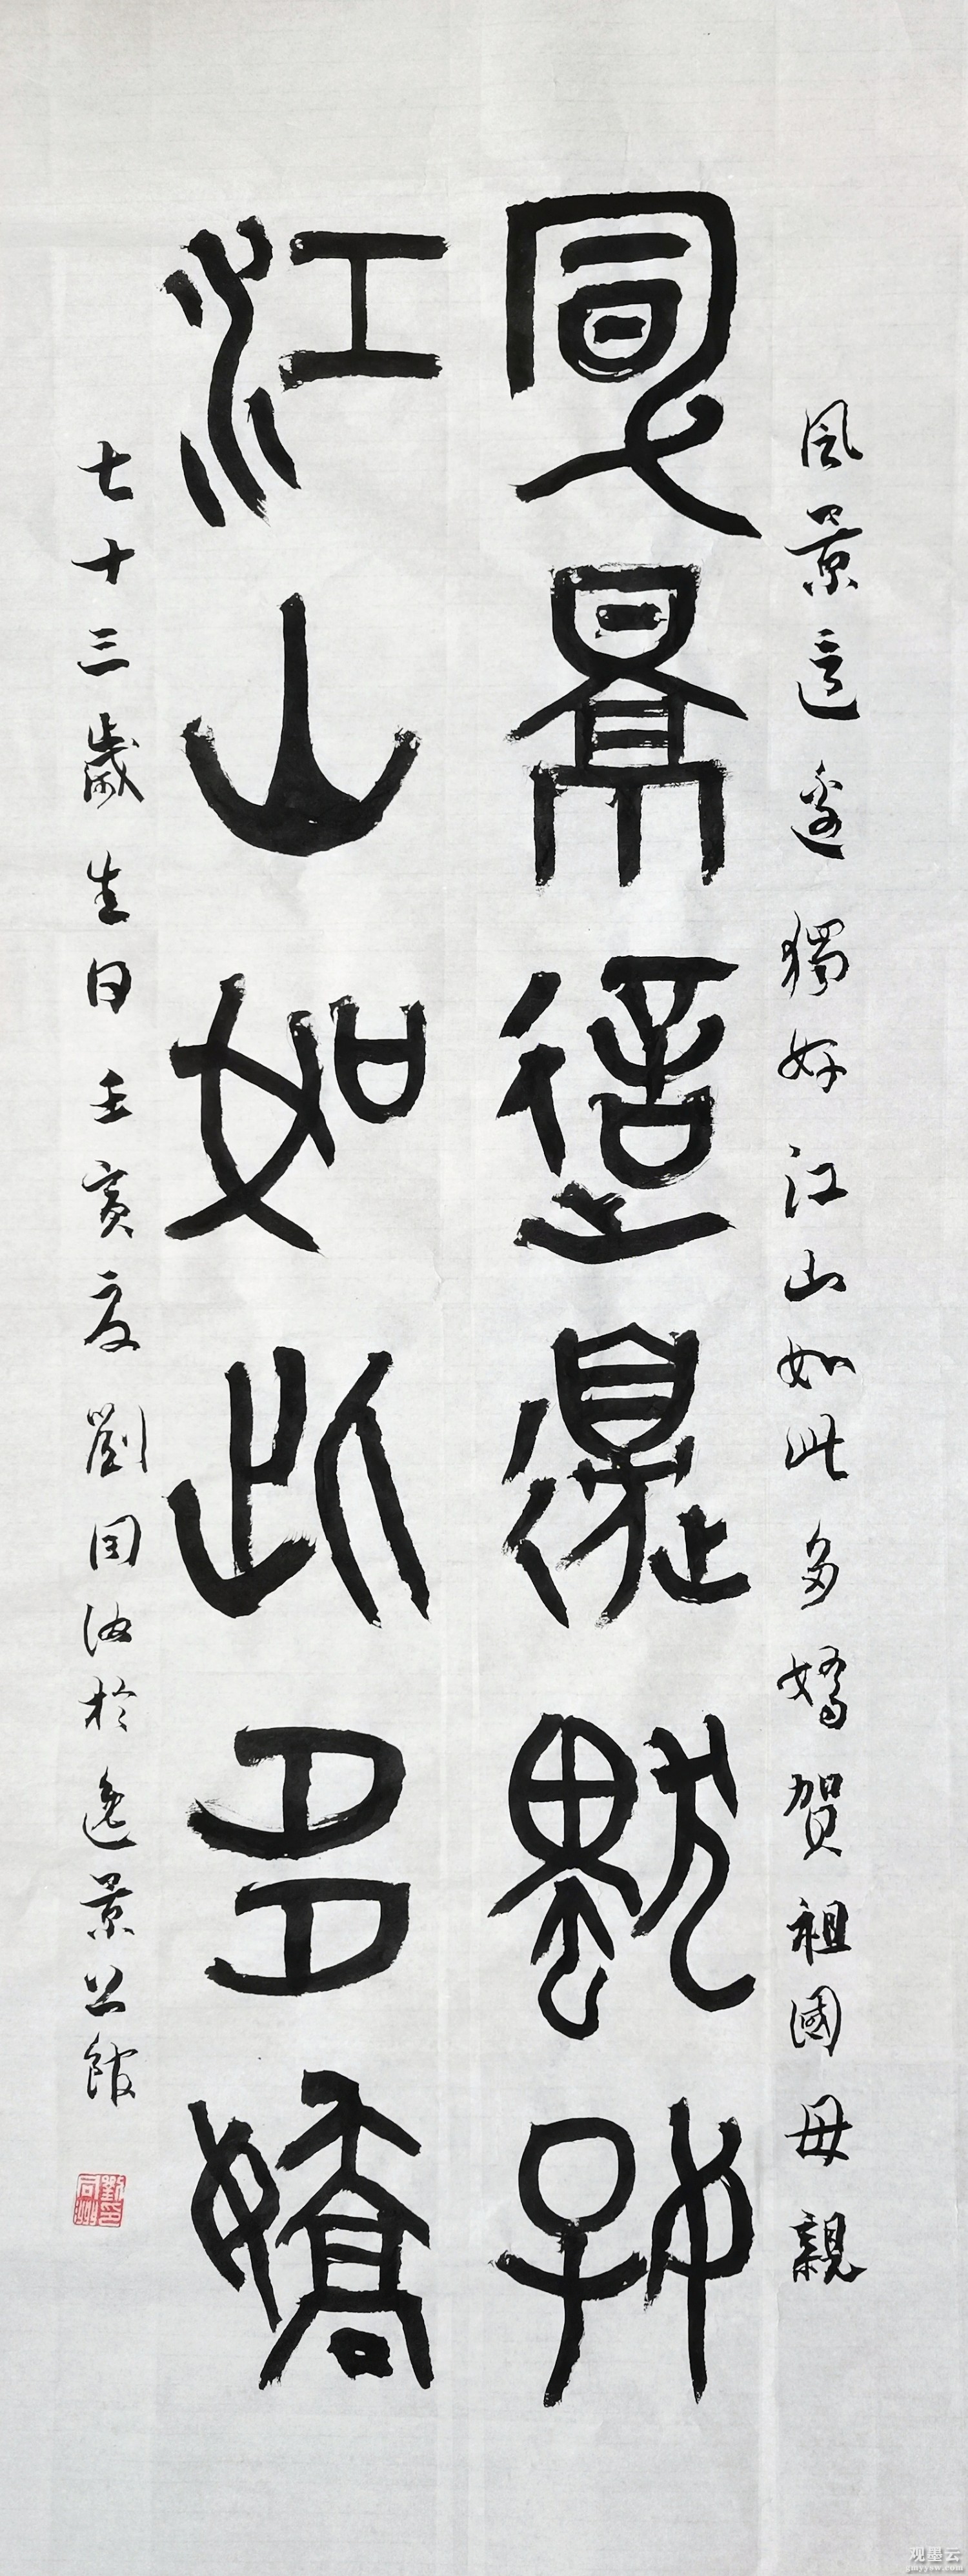 風景這邊獨好江山如此多嬌賀祖國母親
風景這邊獨好
江山如此多嬌
七十三歲生日壬寅夏劉同洲於逸景公館
观墨云
gmyysw.com